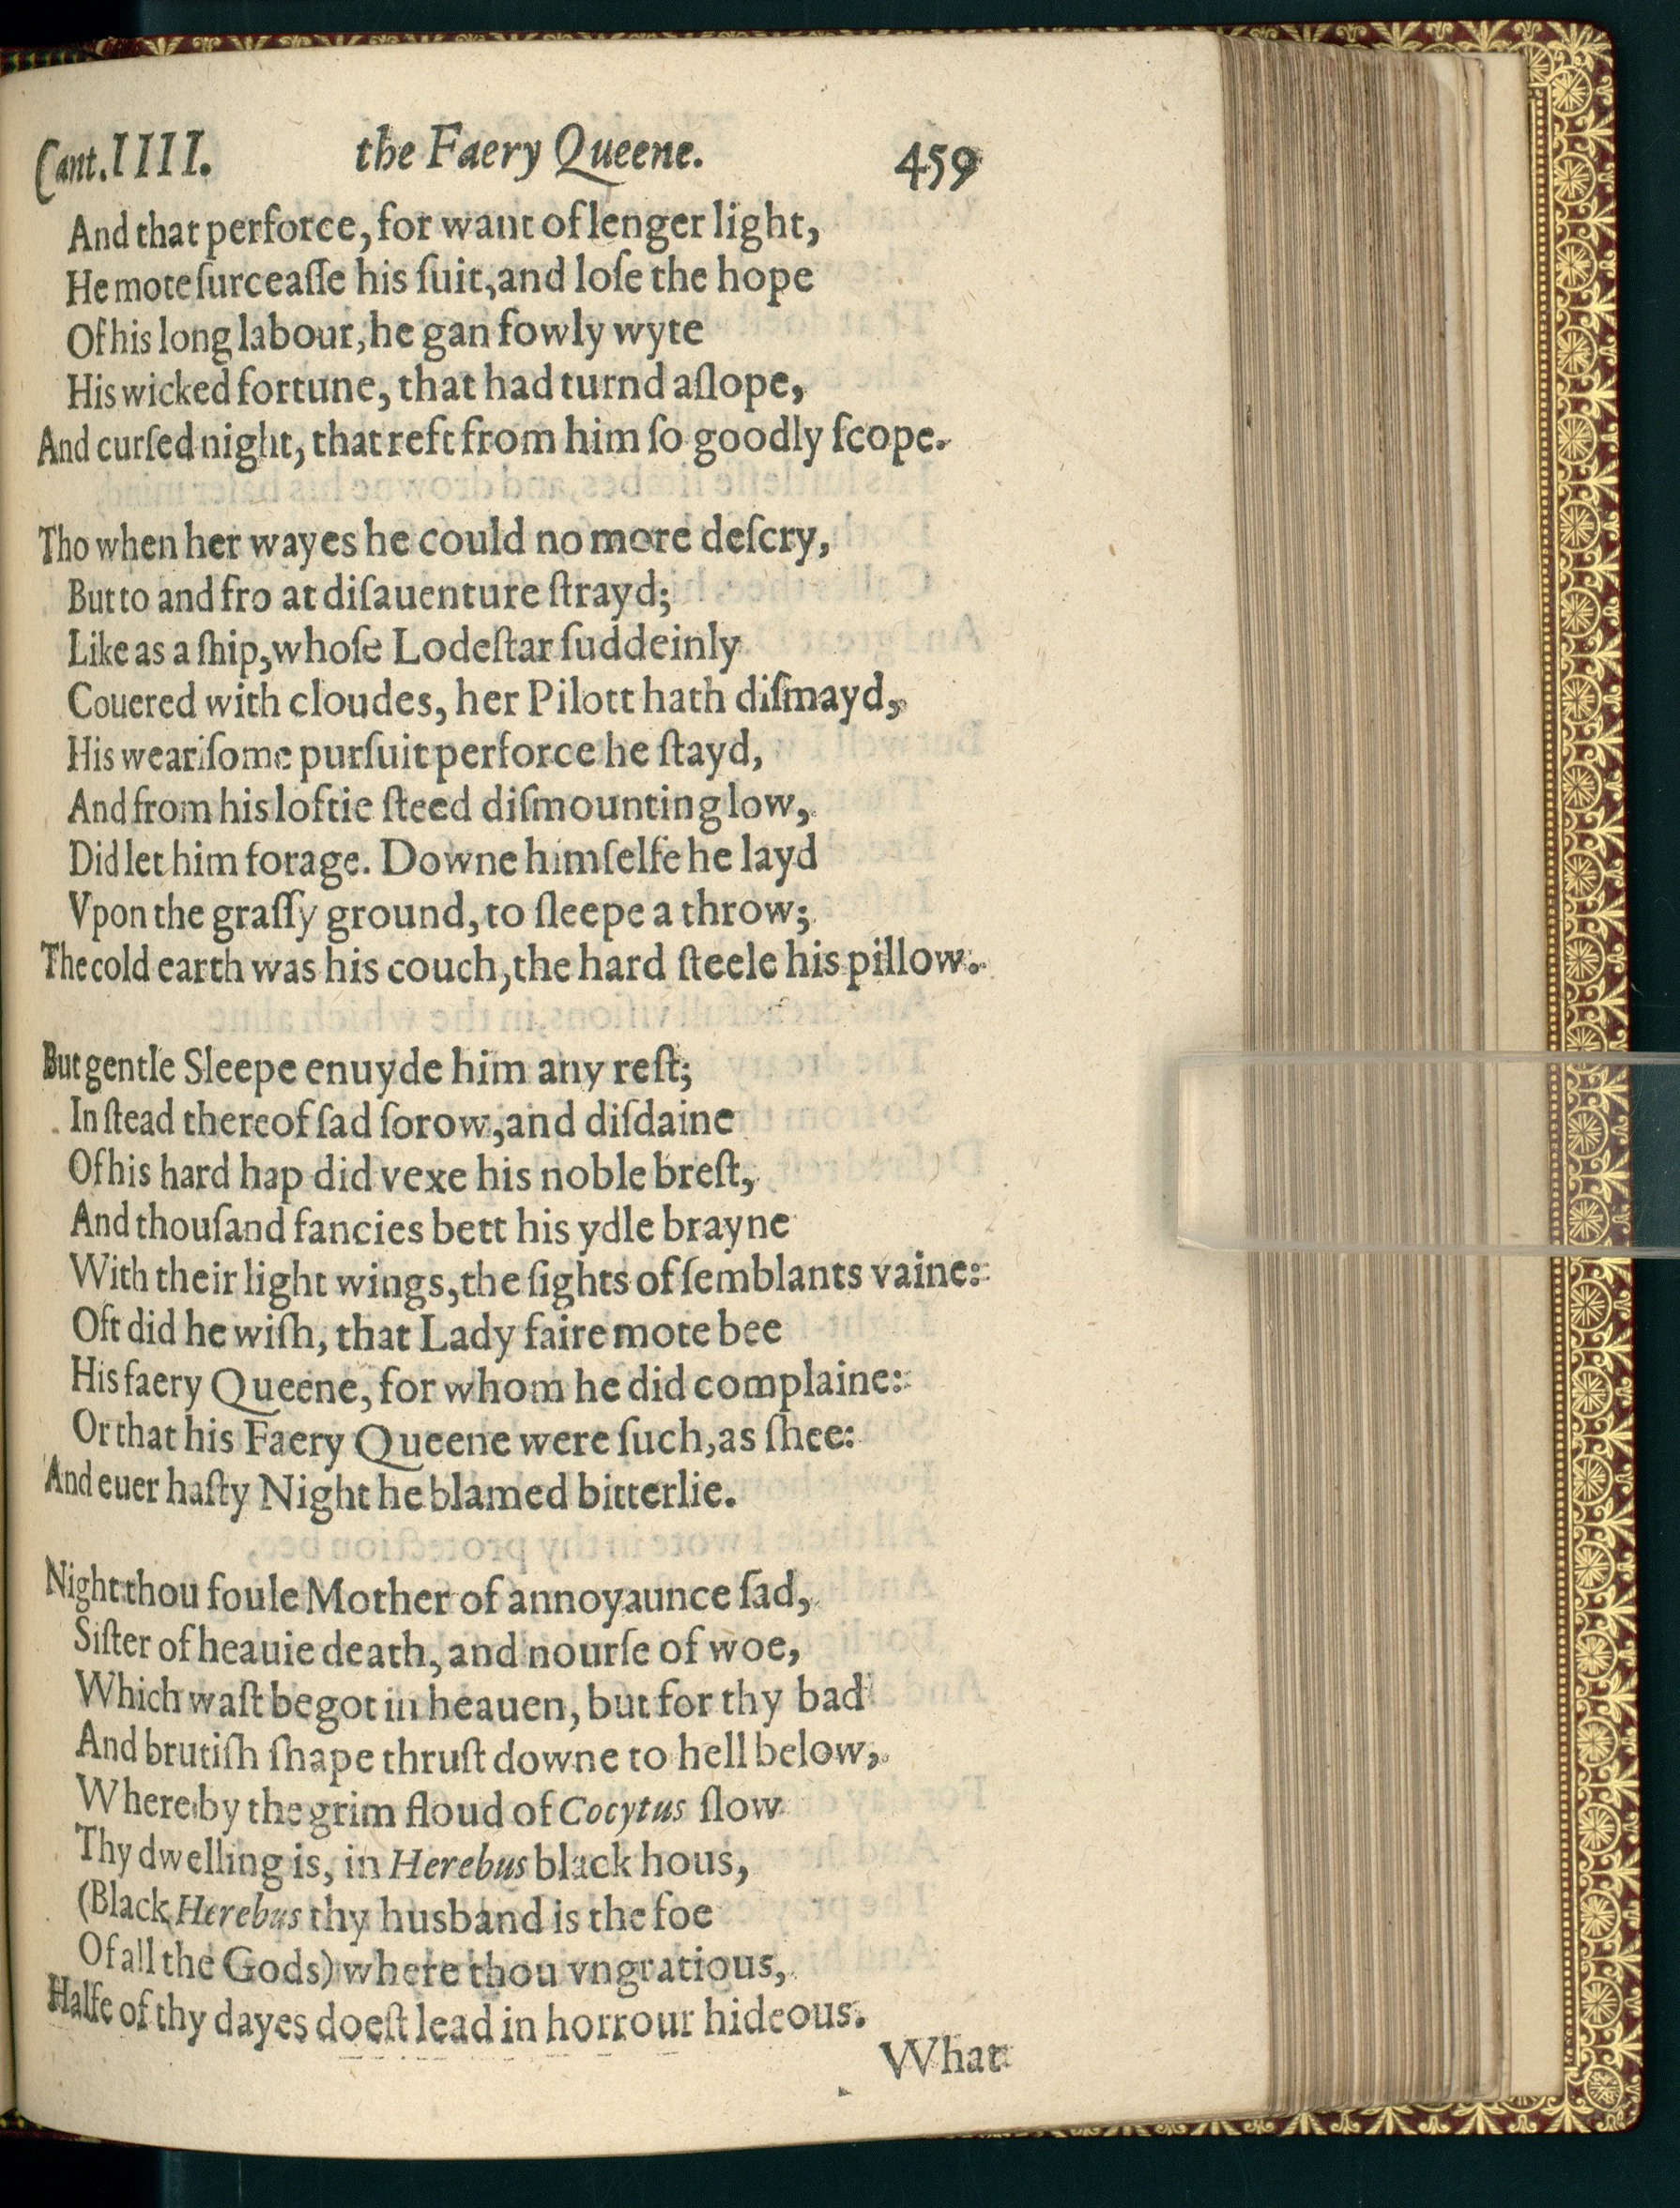 Cant. IIII. the Faery Queene. 459
And that perforce, for want of lenger light,
He mote ſurceaſſe his ſuit, and loſe the hope
Of his long labour, he gan fowly wyte
His wicked fortune, that had turnd aſlope,
And curſed night, that reft from him ſo goodly ſcope.
Tho when her wayes he could no more deſcry,
But to and fro at diſauenture ſtrayd;
Like as a ſhip, whoſe Lodeſtar ſuddeinly
Couered with cloudes, her Pilott hath diſmayd,
His weariſome purſuit perforce he ſtayd,
And from his loftie ſteed diſmounting low,
Did let him forage. Downe himſelfe he layd
Vpon the graſſy ground, to ſleepe a throw;
The cold earth was his couch, the hard ſteele his pillow.
But gentle Sleepe enuyde him any reſt;
In ſtead thereof ſad ſorow, and diſdaine
Of his hard hap did vexe his noble breſt,
And thouſand fancies bett his ydle brayne
With their light wings, the ſights of ſemblants vaine:
Oft did he wiſh, that Lady faire mote bee
His faery Queene, for whom he did complaine:
Or that his Faery Queene were ſuch, as ſhee:
And euer haſty Night he blamed bitterlie.
Night thou foule Mother of annoyaunce ſad,
Siſter of heauie death, and nourſe of woe,
Which waſt begot in heauen, but for thy bad
And brutiſh ſhape thruſt downe to hell below,
Where by the grim floud of Cocytus ſlow
Thy dwelling is, in Herebus black hous,
(Black Herebus thy husband is the foe
Of all the Gods) where thou vngratious,
Halfe of thy dayes doeſt lead in horrour hideous.
What